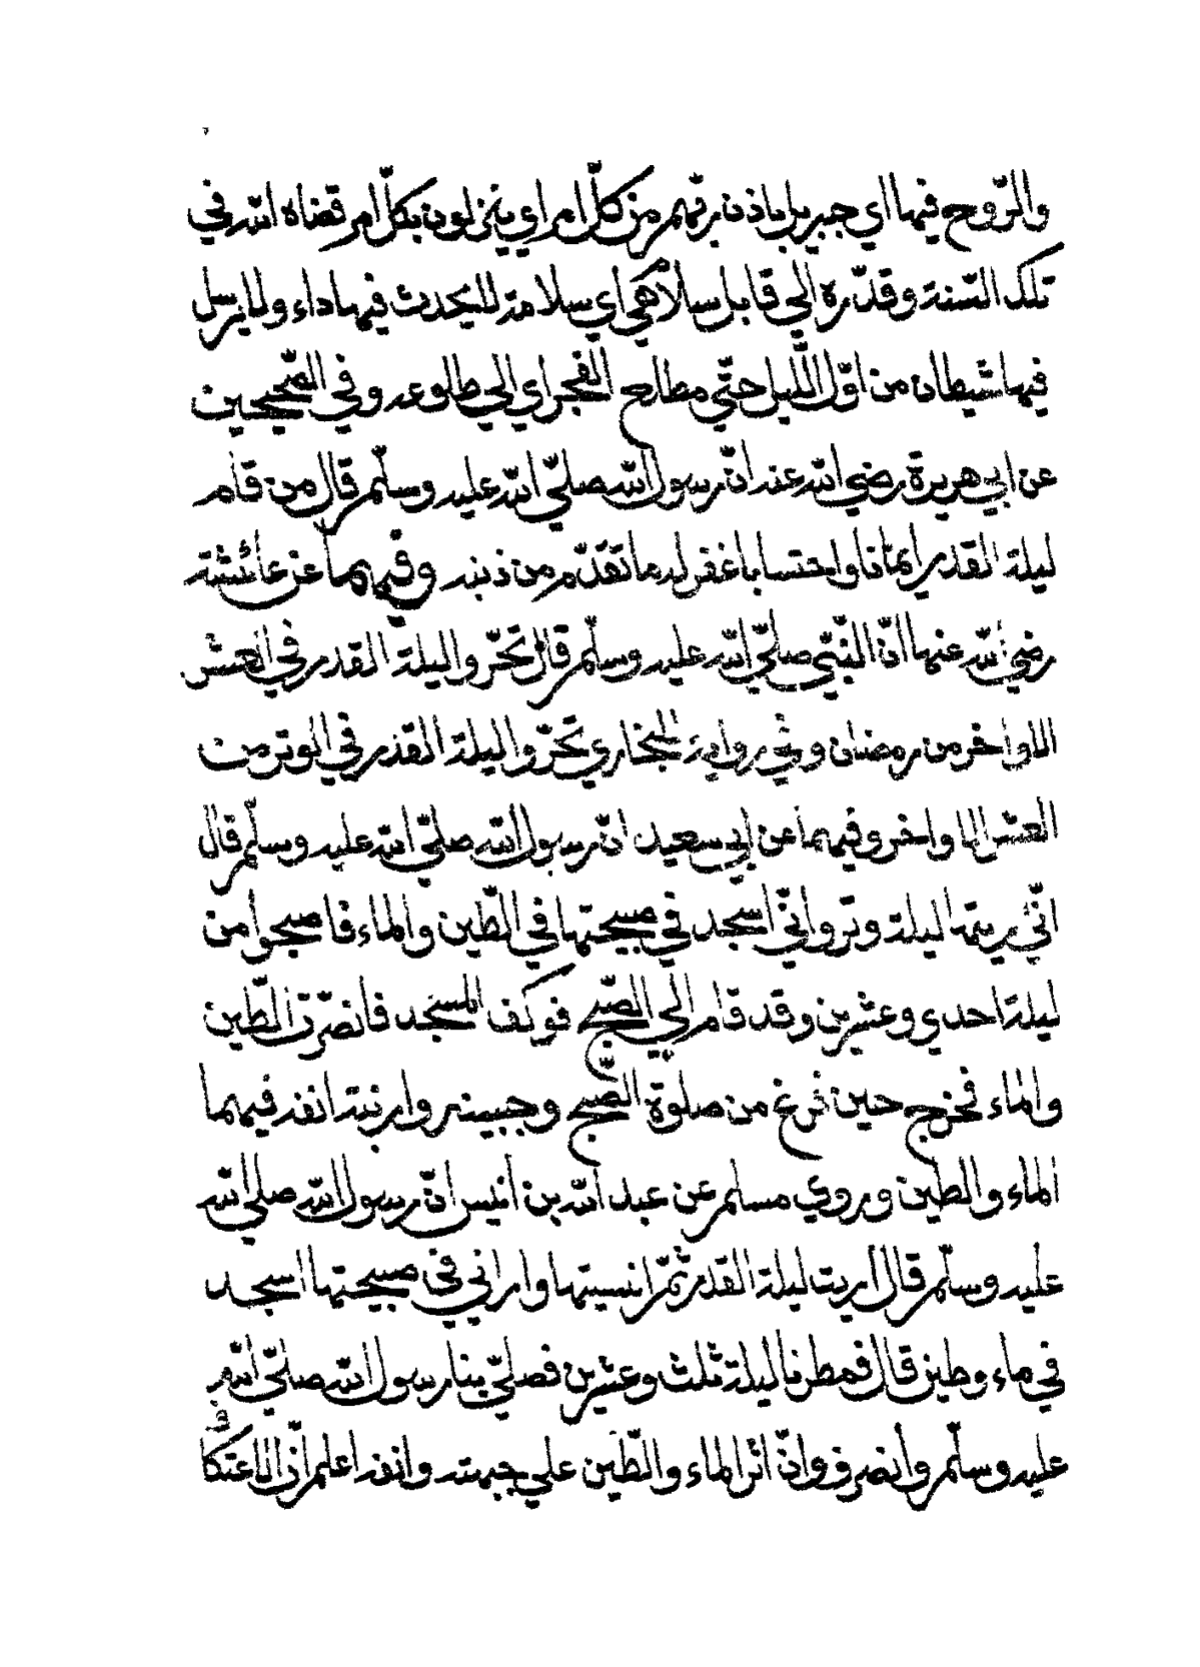 والرّوح فيها اي جبريل باذن ربّهم من كلّ امر اي ينزلون بكلّ امر قضاه اللّه في
تلك السّنة وقدّره الي قابل سلام هي اي سلامة لا يحدث فيها داء ولا يرسل
فيها شيطان من اوّل اللّيل حتّي مطلع الفجر اي الي طلوعه وفي الصّحيحين
عن ابي هريرة رضي اللّه عنه انّ رسول اللّه صلّي اللّه عليه وسلّم قال من قام
ليلة القدر ايمانا واحتسابا غفر له ما تقدّم من ذنبه وفيهما عن عائشة
رضي اللّه عنها انّ النّبيّ صلّي اللّه عليه وسلّم قال تحرّوا ليلة القدر في العشر
الاواخر من رمضان وفي رواية البخاري تحرّوا ليلة القدر في الوتر من
العشر الاواخر وفيهما عن ابي سعيد انّ رسول اللّه صلّي اللّه عليه وسلّم قال
انّي اريتها ليلة وتر وانّي اسجد في صبيحتها في الطّين والماء فاصبحوا من
ليلة احدي وعشرين وقد قام الي الصّبح فوكف المسجد فابصرت الطّين
والماء فخرج حين فرغ من صلوة الصّبح وجبينه وارنبة انفه فيهما
الماء والطين وروي مسلم عن عبد اللّه بن أنيس انّ رسول اللّه صلي اللّه
عليه وسلّم قال أريت ليلة القدر ثمّ انسيتها واراني في صبيحتها اسجد
في ماء وطين قال فمطرنا ليلة ثلث وعشرين فصلّي بنا رسول اللّه صلّي اللّه
عليه وسلّم وأنصرف وانّ اثر الماء والطّين علي جبهته وانفه اعلم أنّ الاعتكاف